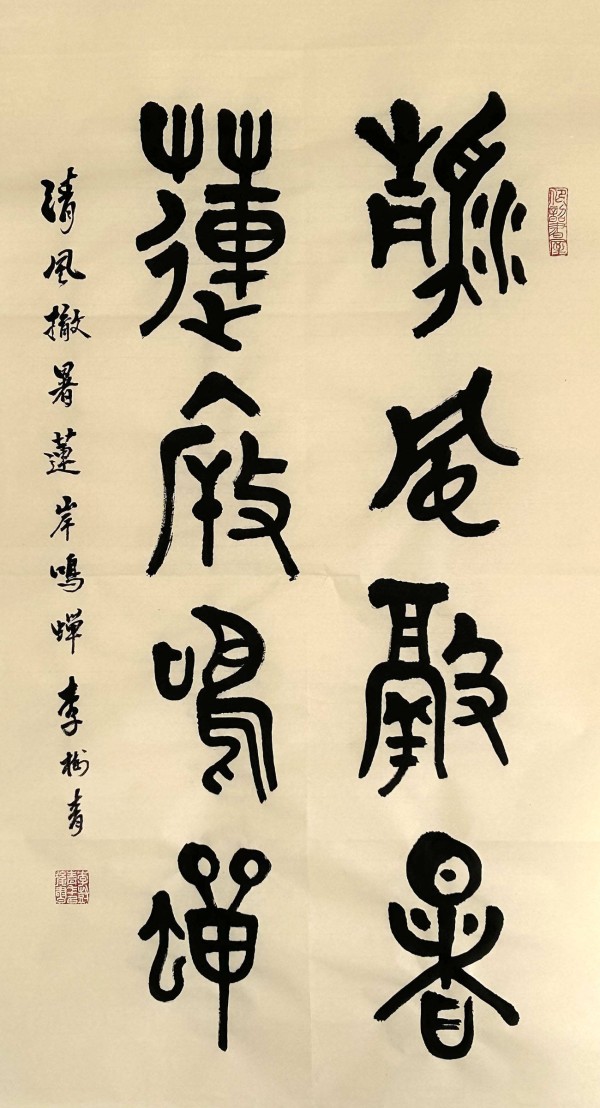 清風撤暑
蓮岸鳴蟬
清风撤暑蓮岸鳴蝉李樹青